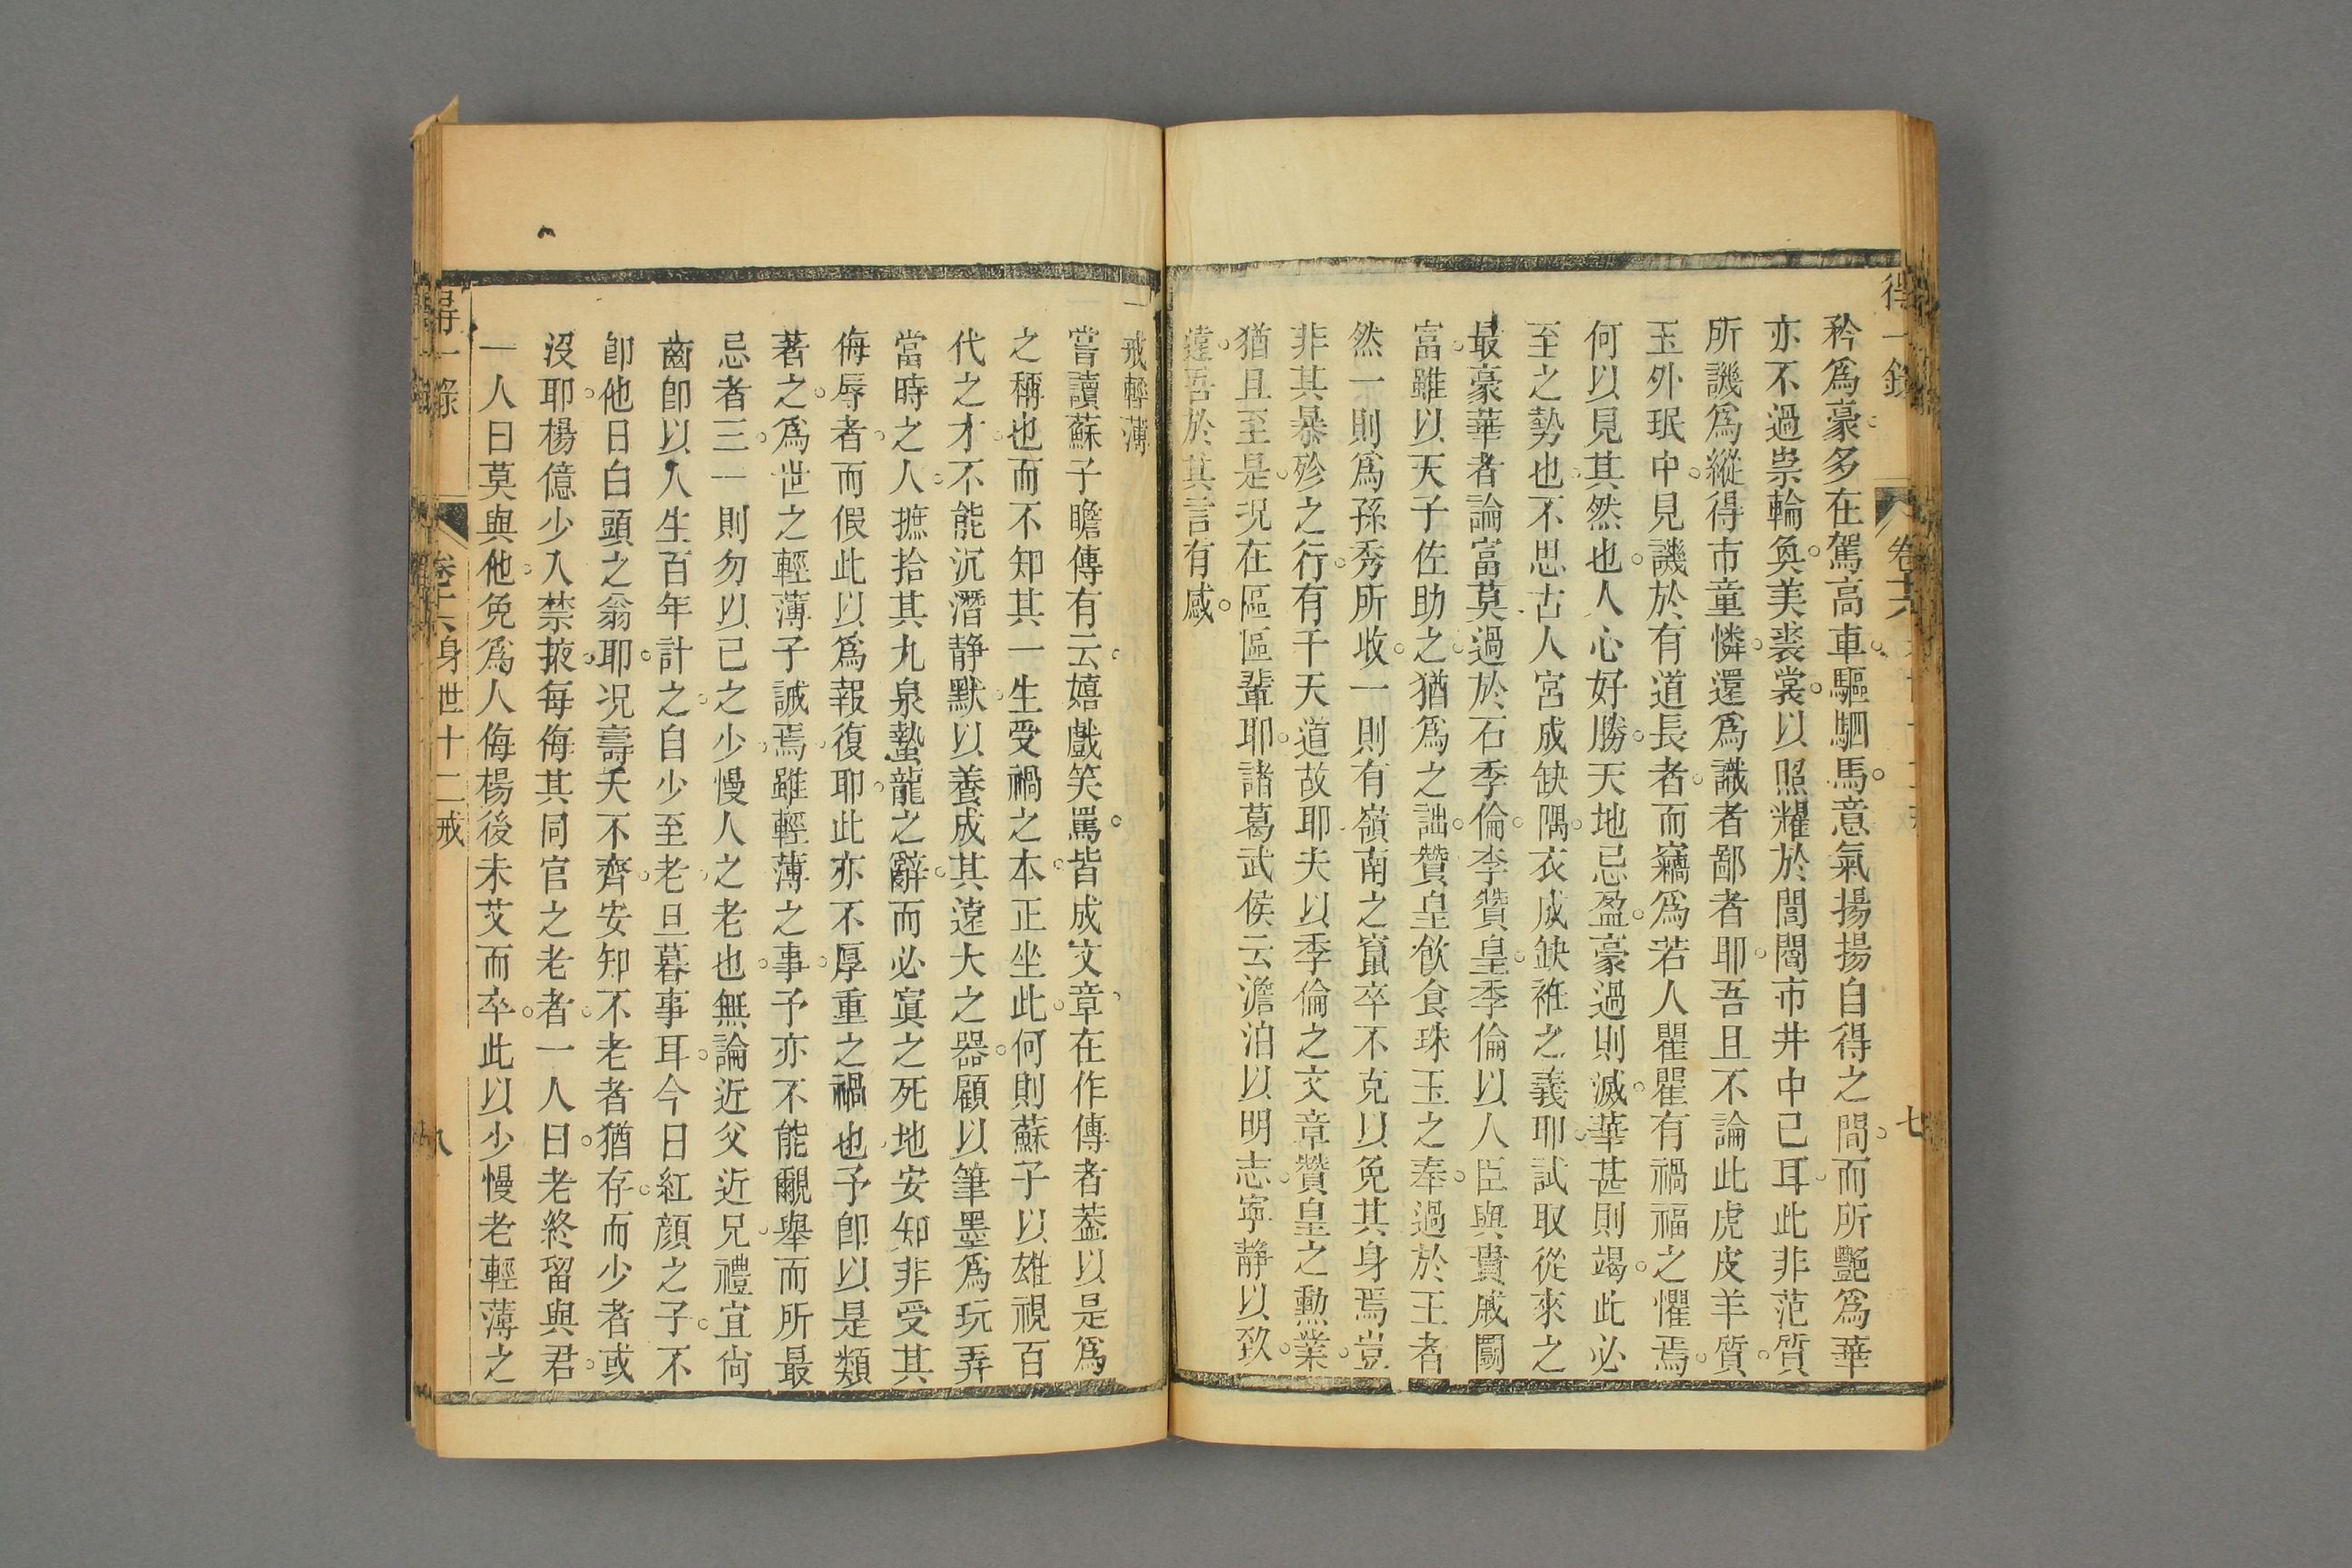 得一錄
卷十六
七
矜爲豪多在駕高車驅駟馬意氣揚揚自得之間而所艷爲華
亦不過崇輪奐美裘裳以照耀於閭閻市井中已耳此非范質
所譏爲縱得市童憐還爲識者鄙者耶吾且不論此虎皮羊質
玉外珉中見譏於有道長者而竊爲若人瞿瞿有禍福之懼焉
何以見其然也人心好勝天地忌盈豪過則滅華甚則竭此必
至之勢也不思古人宮成缺隅衣成缺袵之義耶試取從來之
最豪華者論富莫過於石季倫李贊皇季倫以人臣與貴戚鬭
富雖以天子佐助之猶爲之詘贊皇飲食珠玉之奉過於王者
然一則爲孫秀所收一則有嶺南之竄卒不克以免其身焉豈
非其暴殄之行有干天道故耶夫以季倫之文章贊皇之勲業
猶且至是況在區區輩耶諸葛武侯云澹泊以明志寧静以致
遠吾於其言有感
一戒輕薄
嘗讀蘇子瞻傳有云嬉戲笑罵皆成文章在作傳者葢以是爲
之稱也而不知其一生受禍之本正坐此何則蘇子以雄視百
代之才不能沉潛静默以養成其遠大之器顧以筆墨爲玩弄
當時之人摭拾其九泉蟄龍之辭而必寘之死地安知非受其
侮辱者而假此以爲報復耶此亦不厚重之禍也予卽以是類
著之爲世之輕薄子誡焉雖輕薄之事予亦不能覼舉而所最
忌者三一則勿以己之少慢人之老也無論近父近兄禮宜尙
齒卽以人生百年計之自少至老旦暮事耳今日紅顏之子不
卽他日白頭之翁耶况壽夭不齊安知不老者猶存而少者或
沒耶楊億少入禁掖每侮其同官之老者一人曰老終留與君
一人曰莫與他免爲人侮楊後未艾而卒此以少慢老輕薄之
得一錄
卷十六
身世十二戒
八